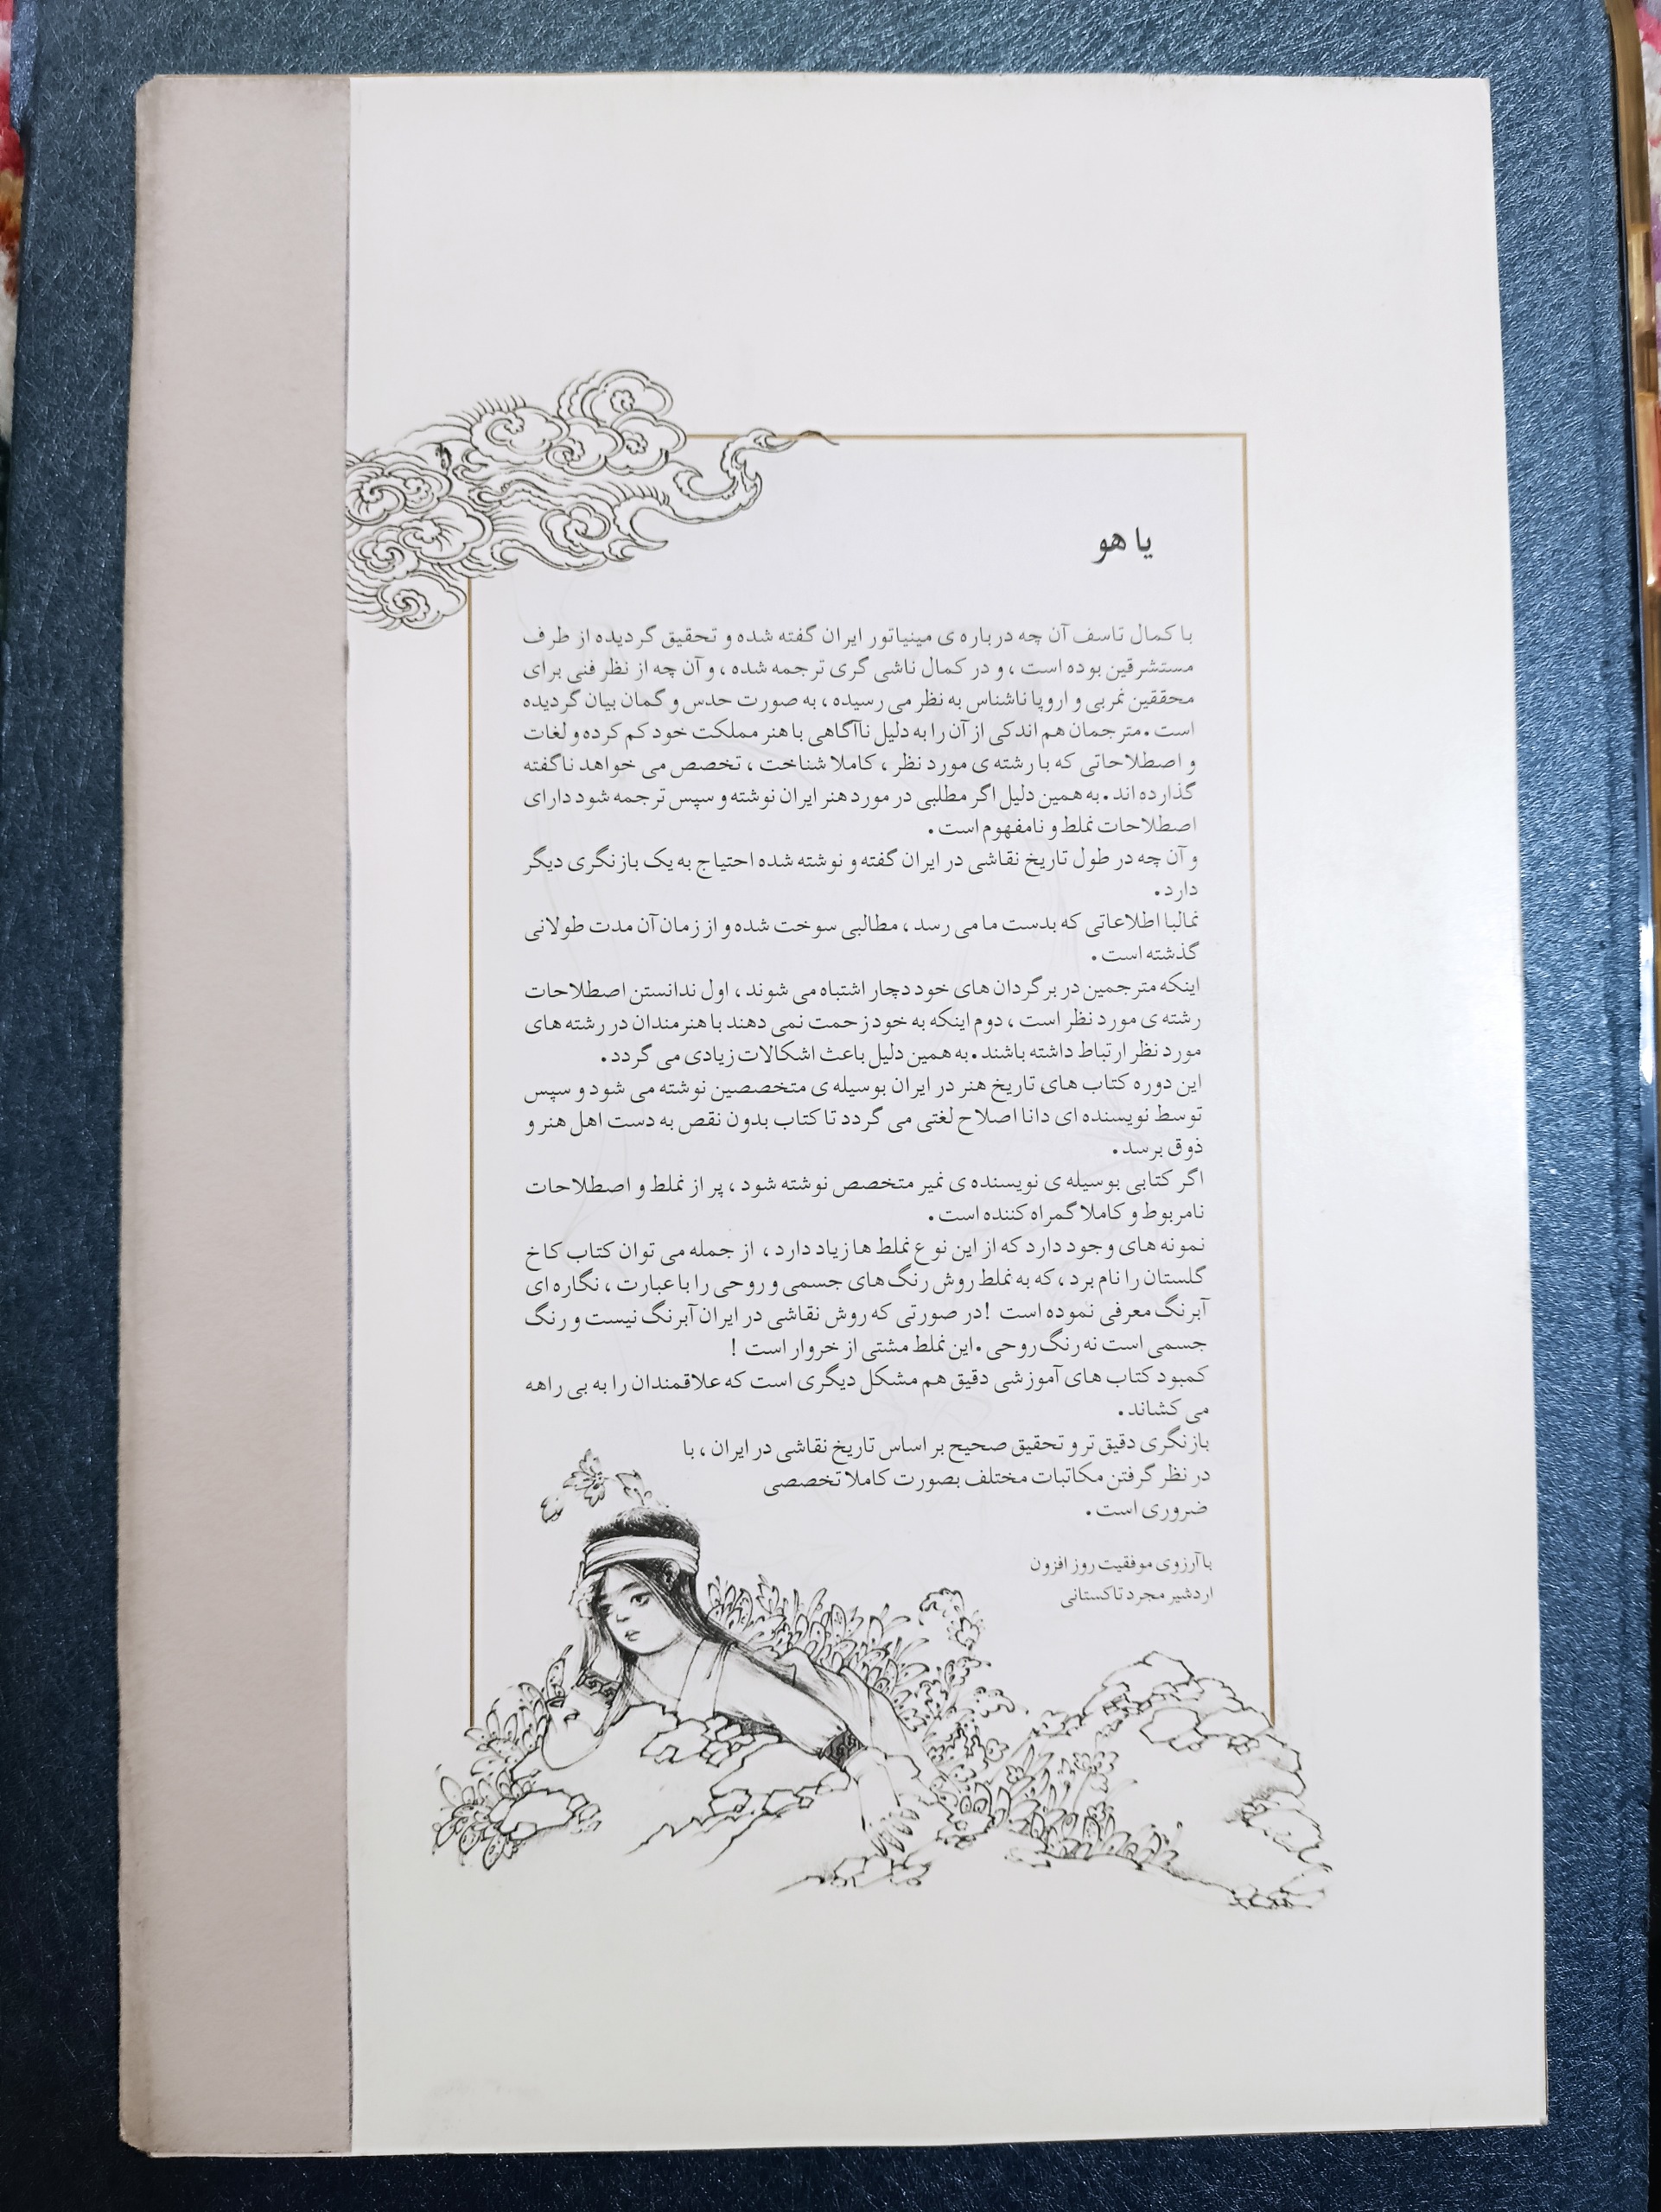 یا هو
با کمال تاسف آن چه درباره ی مینیاتور ایران گفته شده و تحقیق گردیده از طرف
مستشرقین بوده است ، و در کمال ناشی گری ترجمه شده ، و آن چه از نظر فنی برای
محققین غربی و اروپا ناشناس به نظر می رسیده ، به صورت حدس و گمان بیان گردیده
است . مترجمان هم اندکی از آن را به دلیل ناآگاهی با هنر مملکت خود کم کرده و لغات
و اصطلاحاتی که با رشته ی مورد نظر ، کاملا شناخت ، تخصص می خواهد ناگفته
گذارده اند . به همین دلیل اگر مطلبی در مورد هنر ایران نوشته و سپس ترجمه شود دارای
اصطلاحات غلط و نامفهوم است .
و آن چه در طول تاریخ نقاشی در ایران گفته و نوشته شده احتیاج به یک بازنگری دیگر
دارد .
غالبا اطلاعاتی که بدست ما می رسد ، مطالبی سوخت شده و از زمان آن مدت طولانی
گذشته است .
اینکه مترجمین در برگردان های خود دچار اشتباه می شوند ، اول ندانستن اصطلاحات
رشته ی مورد نظر است ، دوم اینکه به خود زحمت نمی دهند با هنرمندان در رشته های
مورد نظر ارتباط داشته باشند . به همین دلیل باعث اشکالات زیادی می گردد .
این دوره کتاب های تاریخ هنر در ایران بوسیله ی متخصصین نوشته می شود و سپس
توسط نویسنده ای دانا اصلاح لغتی می گردد تا کتاب بدون نقص به دست اهل هنر و
ذوق برسد .
اگر کتابی بوسیله ی نویسنده ی غیر متخصص نوشته شود ، پر از غلط و اصطلاحات
نامربوط و کاملا گمراه کننده است .
نمونه های وجود دارد که از این نوع غلط ها زیاد دارد ، از جمله می توان کتاب کاخ
گلستان را نام برد ، که به غلط روش رنگ های جسمی و روحی را با عبارت ، نگاره ای
آبرنگ معرفی نموده است ! در صورتی که روش نقاشی در ایران آبرنگ نیست و رنگ
جسمی است نه رنگ روحی . این غلط مشتی از خروار است !
کمبود کتاب های آموزشی دقیق هم مشکل دیگری است که علاقمندان را به بی راهه
می کشاند .
بازنگری دقیق تر و تحقیق صحیح بر اساس تاریخ نقاشی در ایران ، با
در نظر گرفتن مکاتبات مختلف بصورت کاملا تخصصی
ضروری است .
با آرزوی موفقیت روز افزون
اردشیر مجرد تاکستانی